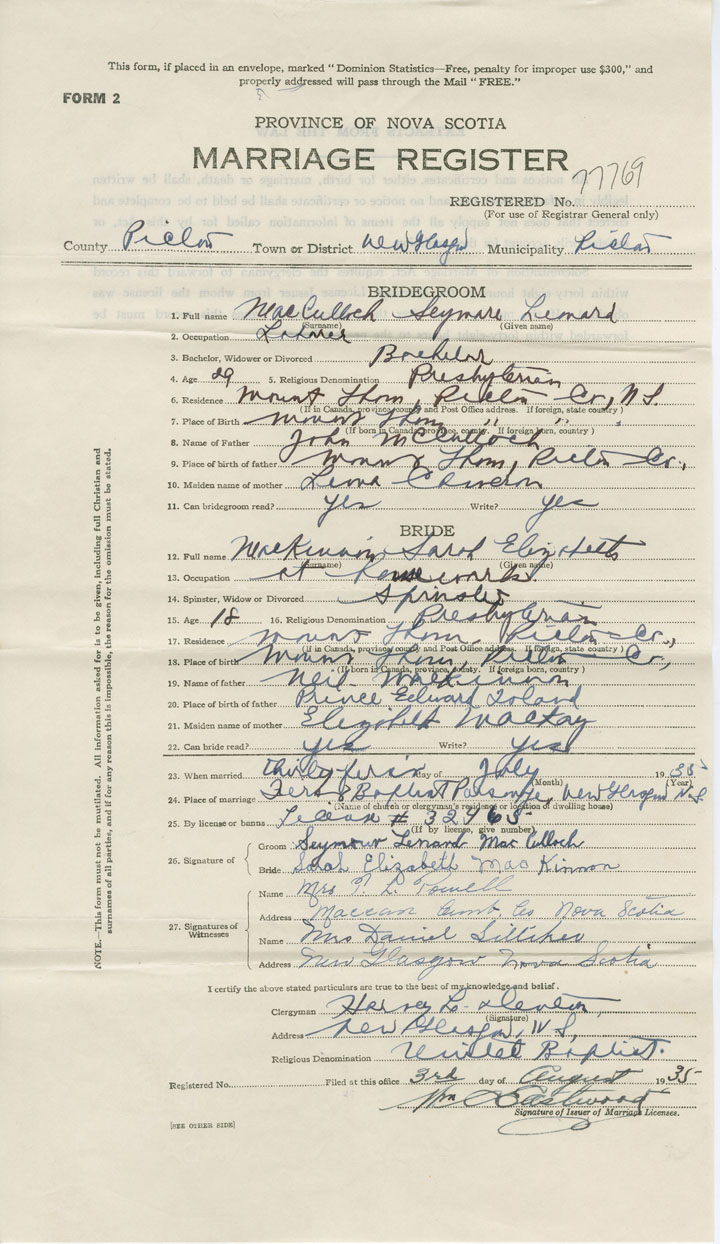 This form, if placed in an envelope, marked "Dominion Statistics—Free, penalty for improper use $300," and
properly addressed will pass through the Mail "FREE."
FORM 2
PROVINCE OF NOVA SCOTIA
MARRIAGE REGISTER
77769
REGISTERED No.
(For use of Registrar General only)
County Pictou Town or District New Glasgow Municipality Pictou
BRIDEGROOM
1. Full name MacCulloch Seymore Leonard
(Surname) (Given name)
2. Occupation Laborer
3. Bachelor, Widower or Divorced Bachelor
4. Age 29 5. Religious Denomination Presbyterian
6. Residence Mount Thom, Pictou Co, N S
(If in Canada, province, county and Post Office address. If foreign, state country)
7. Place of Birth Mount Thom " " "
(If born in Canada, province, county. If foreign born, country)
8. Name of Father John McCulloch
9. Place of birth of father Mount Thom, Pictou Co.,
10. Maiden name of mother Lena Cameron
11. Can bridegroom read? Yes Write? Yes
BRIDE
12. Full name MacKinnon Sarah Elizabeth
(Surname) (Given name)
13. Occupation at housework
14. Spinster, Widow or Divorced Spinster
15. Age 18 16. Religious Denomination Presbyterian
17. Residence Mount Thom, Pictou Co.,
(If in Canada, province, county and Post Office address. If foreign, state country)
18. Place of birth Mount Thom, Pictou Co,
(If born in Canada, province, county. If foreign born, country)
19. Name of father Neil MacKinnon
20. Place of birth of father Prince Edward Island
21. Maiden name of mother Elizabeth MacKay
22. Can bride read? Yes Write? Yes
23. When married Thirty first day of July 1935
(Month) (Year)
24. Place of marriage First Baptist Parsonage, New Glasgow N.S.
(Name of church or clergyman's residence or location of dwelling house)
25. By license or banns License # 32965
(If by license, give number)
26. Signature of
Groom Seymour Lenard MacCulloch
Bride Sarah Elizabeth MacKinnon
27. Signatures of Witnesses
Name Mrs Powell
Address Maccan Cumb Co Nova Scotia
Name Mrs Daniel
Address New Glasgow Nova Scotia
I certify the above stated particulars are true to the best of my knowledge and belief.
Clergyman Harvey L.
(Signature)
Address New Glasgow, N.S.
Religious Denomination United Baptist.
Registered No. Filed at this office 3rd day of August 1935
Wm Eastwood
Signature of Issuer of Marriage Licenses.
[SEE OTHER SIDE]
NOTE.—This form must not be mutilated. All information asked for is to be given, including full Christian and
surnames of all parties, and if for any reason this is impossible, the reason for the omission must be stated.